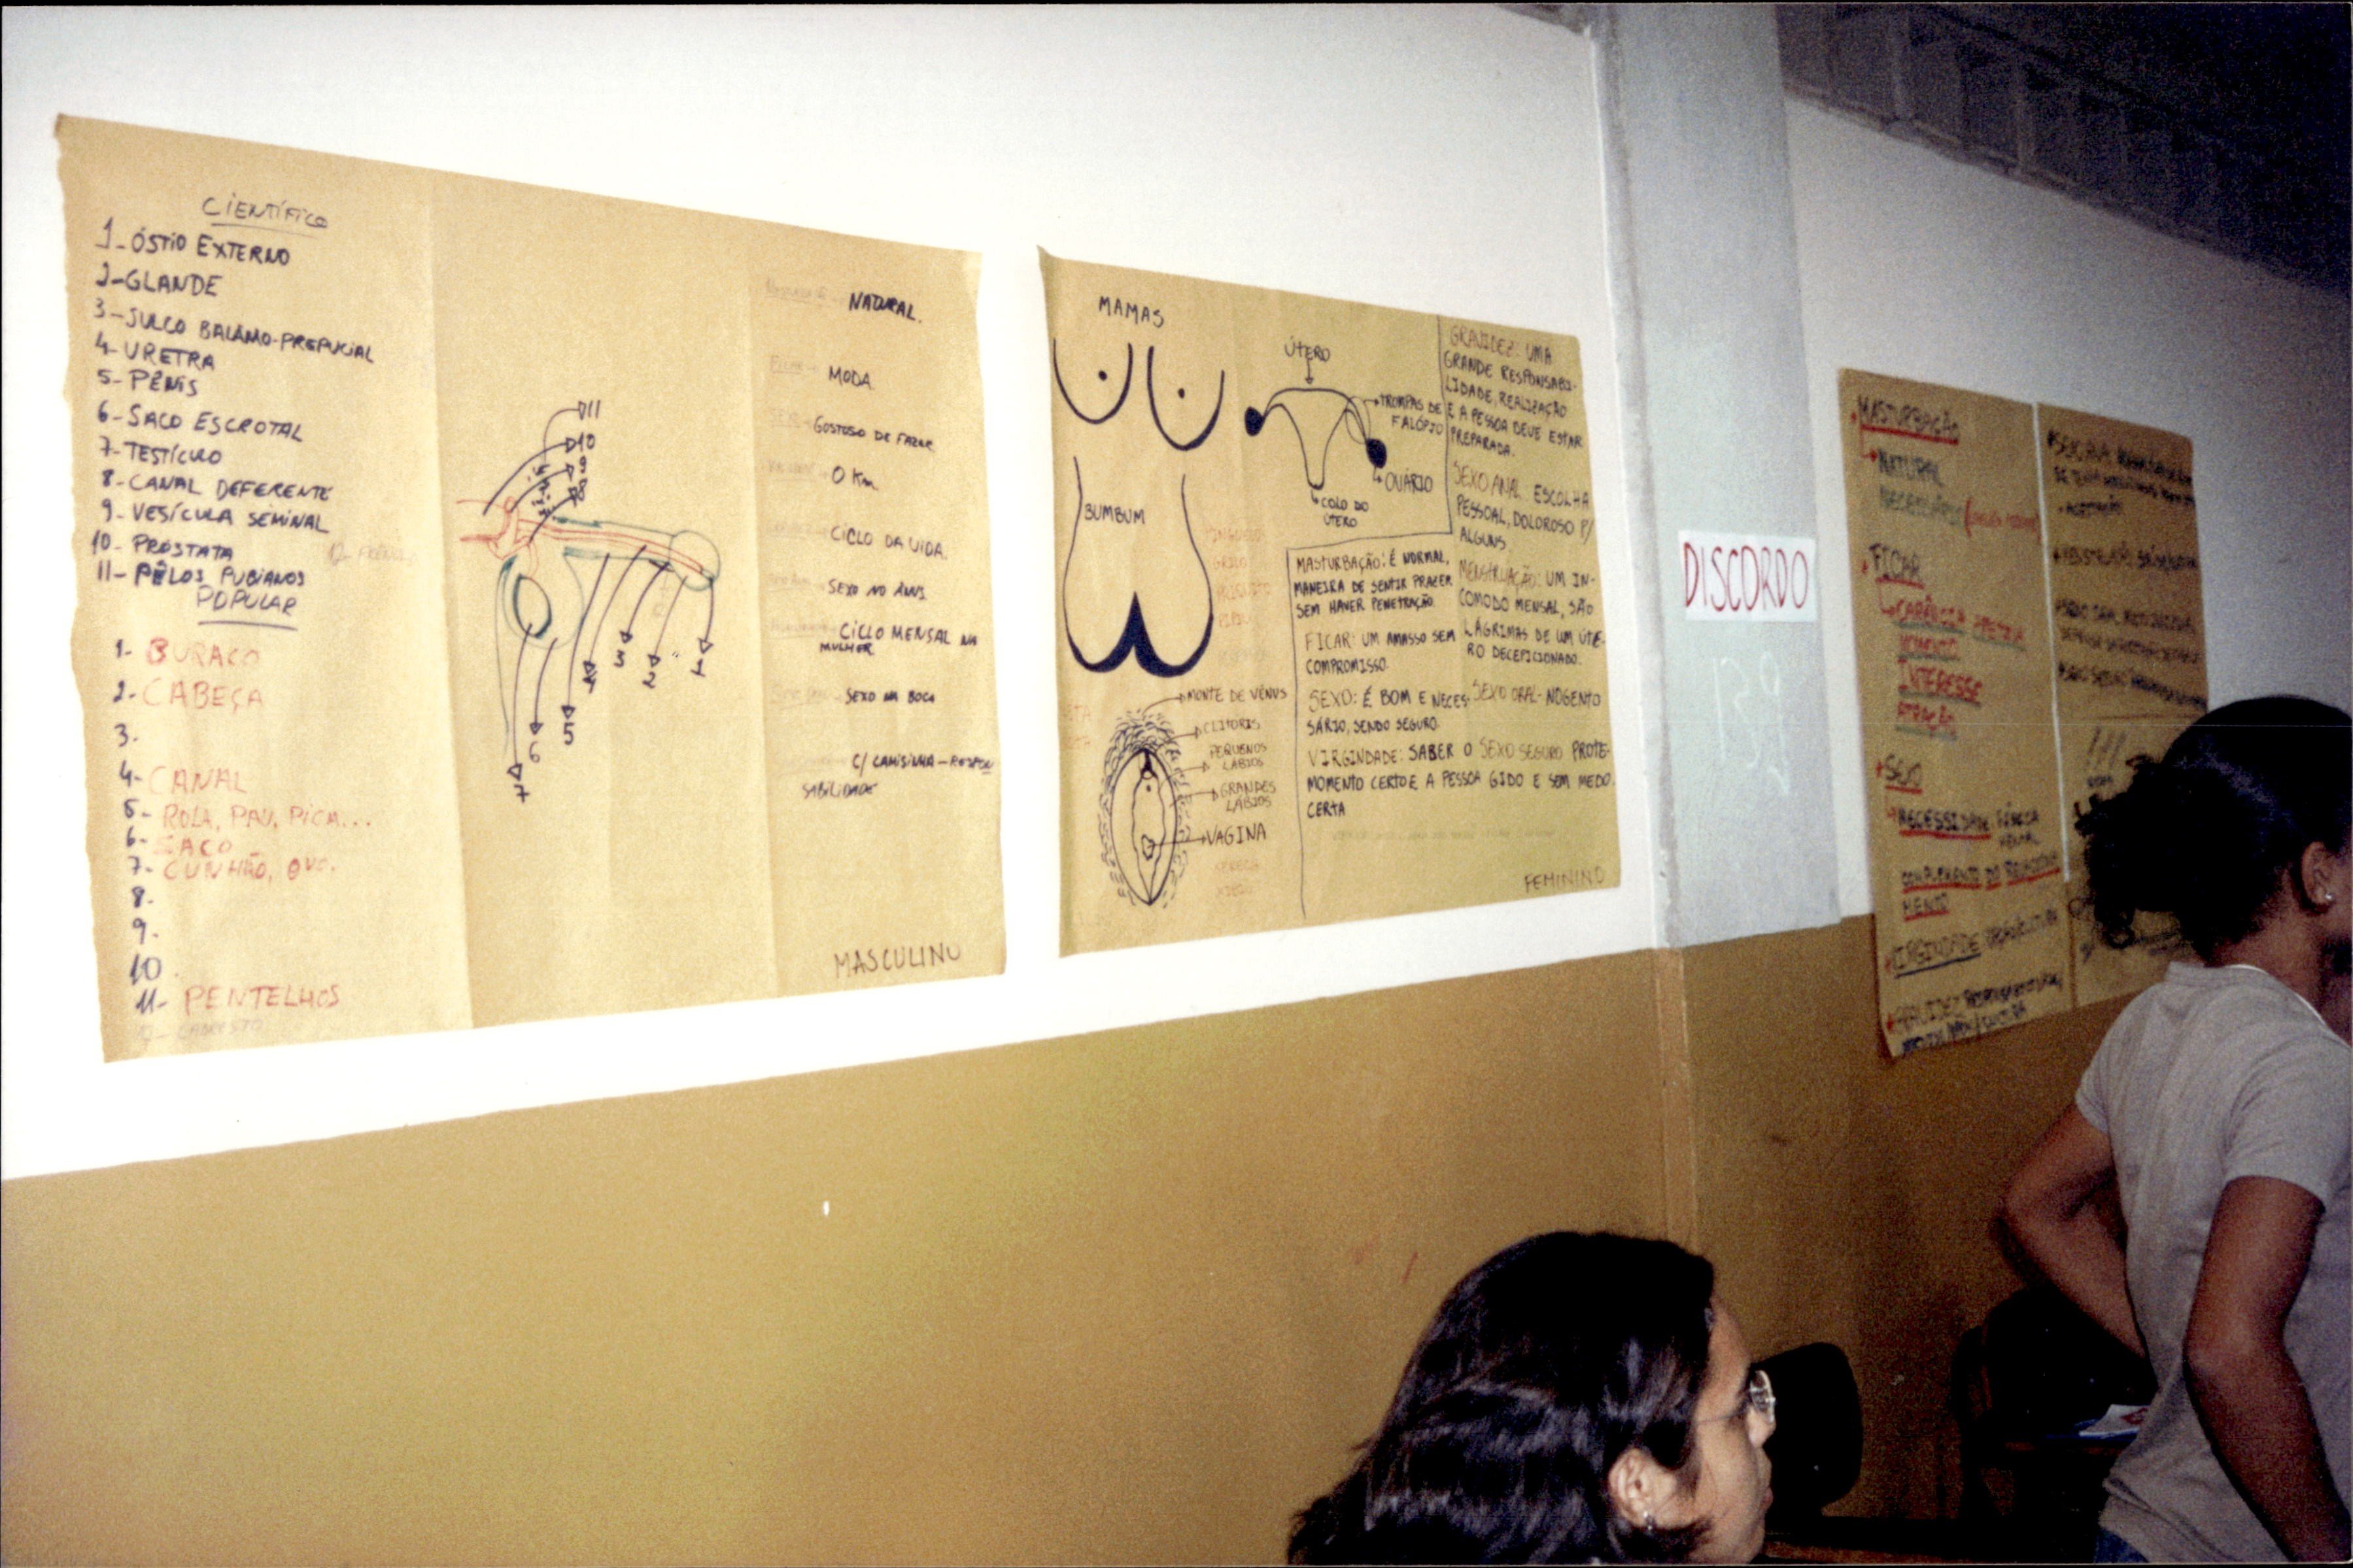 CIENTÍFICO
1- ÓSTIO EXTERNO
2- GLANDE
3- SULCO BALAMO-PREPUCIAL
4- URETRA
5- PÊNIS
6- SACO ESCROTAL
7- TESTÍCULO
8- CANAL DEFERENTE
9- VESÍCULA SEMINAL
10- PRÓSTATA
11- PÊLOS PUBIANOS
POPULAR
1- BURACO
2- CABEÇA
3.
4- CANAL
5- ROLA, PAU, PICA...
6- SACO
7- CUNHÃO, OVO.
8-
9-
10
11- PENTELHOS
11
10
9
8
1
2
3
4
5
6
7
NATURAL.
MODA
GOSTOSO DE FAZER
0 Km
CICLO DA VIDA.
SEXO NO ÂNUS
CICLO MENSAL NA
MULHER
SEXO NA BOCA
C/ CAMISINHA - RESPON
SABILIDADE
MASCULINO
MAMAS
BUMBUM
ÚTERO
TROMPAS DE
FALÓPIO
OVÁRIO
COLO DO
ÚTERO
MONTE DE VÊNUS
CLITÓRIS
PEQUENOS
LÁBIOS
GRANDES
LÁBIOS
VAGINA
GRAVIDEZ: UMA
GRANDE RESPONSABI-
LIDADE, REALIZAÇÃO
E A PESSOA DEVE ESTAR
PREPARADA.
SEXO ANAL: ESCOLHA
PESSOAL, DOLOROSO P/
ALGUNS.
MENSTRUAÇÃO: UM IN-
COMODO MENSAL, SÃO
LÁGRIMAS DE UM ÚTE-
RO DECEPICIONADO.
SEXO ORAL- NOGENTO
SEXO SEGURO PROTE-
GIDO E SEM MEDO.
MASTURBAÇÃO: É NORMAL,
MANEIRA DE SENTIR PRAZER
SEM HAVER PENETRAÇÃO.
FICAR: UM AMASSO SEM
COMPROMISSO.
SEXO: É BOM E NECES-
SÁRIO, SENDO SEGURO.
VIRGINDADE: SABER O
MOMENTO CERTO E A PESSOA
CERTA
FEMININO
DISCORDO
MASTURBAÇÃO
NATURAL
NECESSÁRIO
FICAR
CARÊNCIA AFETIVA
MOMENTO
INTERESSE
ATRAÇÃO
SEXO
NECESSIDADE FÍSICA
COMPLEMENTO DO RELACIONA
MENTO
VIRGINDADE